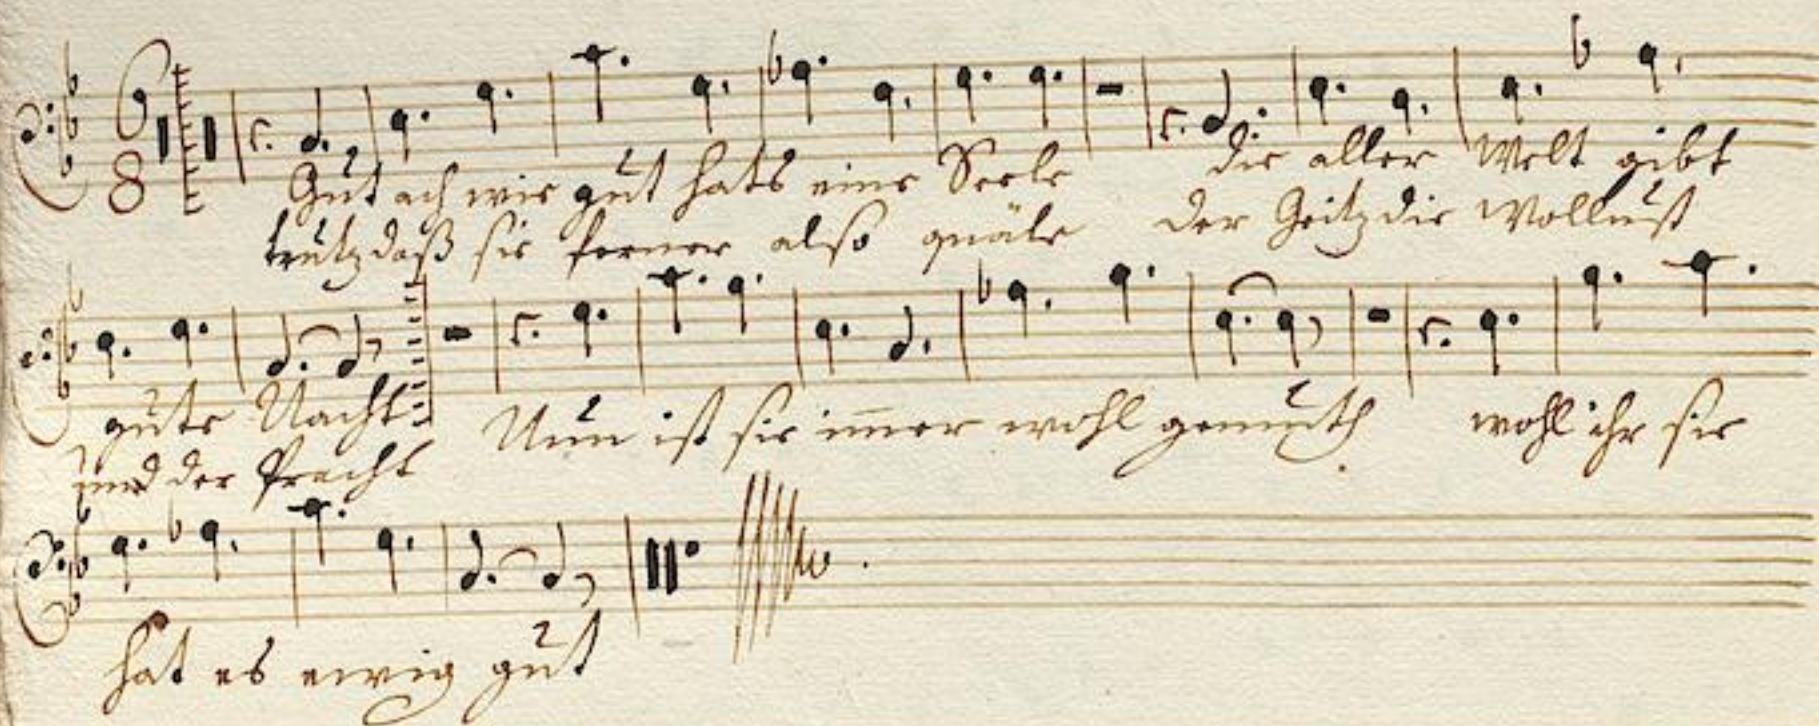 6
8
Gut ach wie gut hats eine Seele die aller Welt gibt
trutz daß sie ferner also quäle der Geitz die Wollust
gute Nacht
und der Pracht
Nun ist sie im̅er wohl gemuth wohl ihr sie
hat es ewig gut